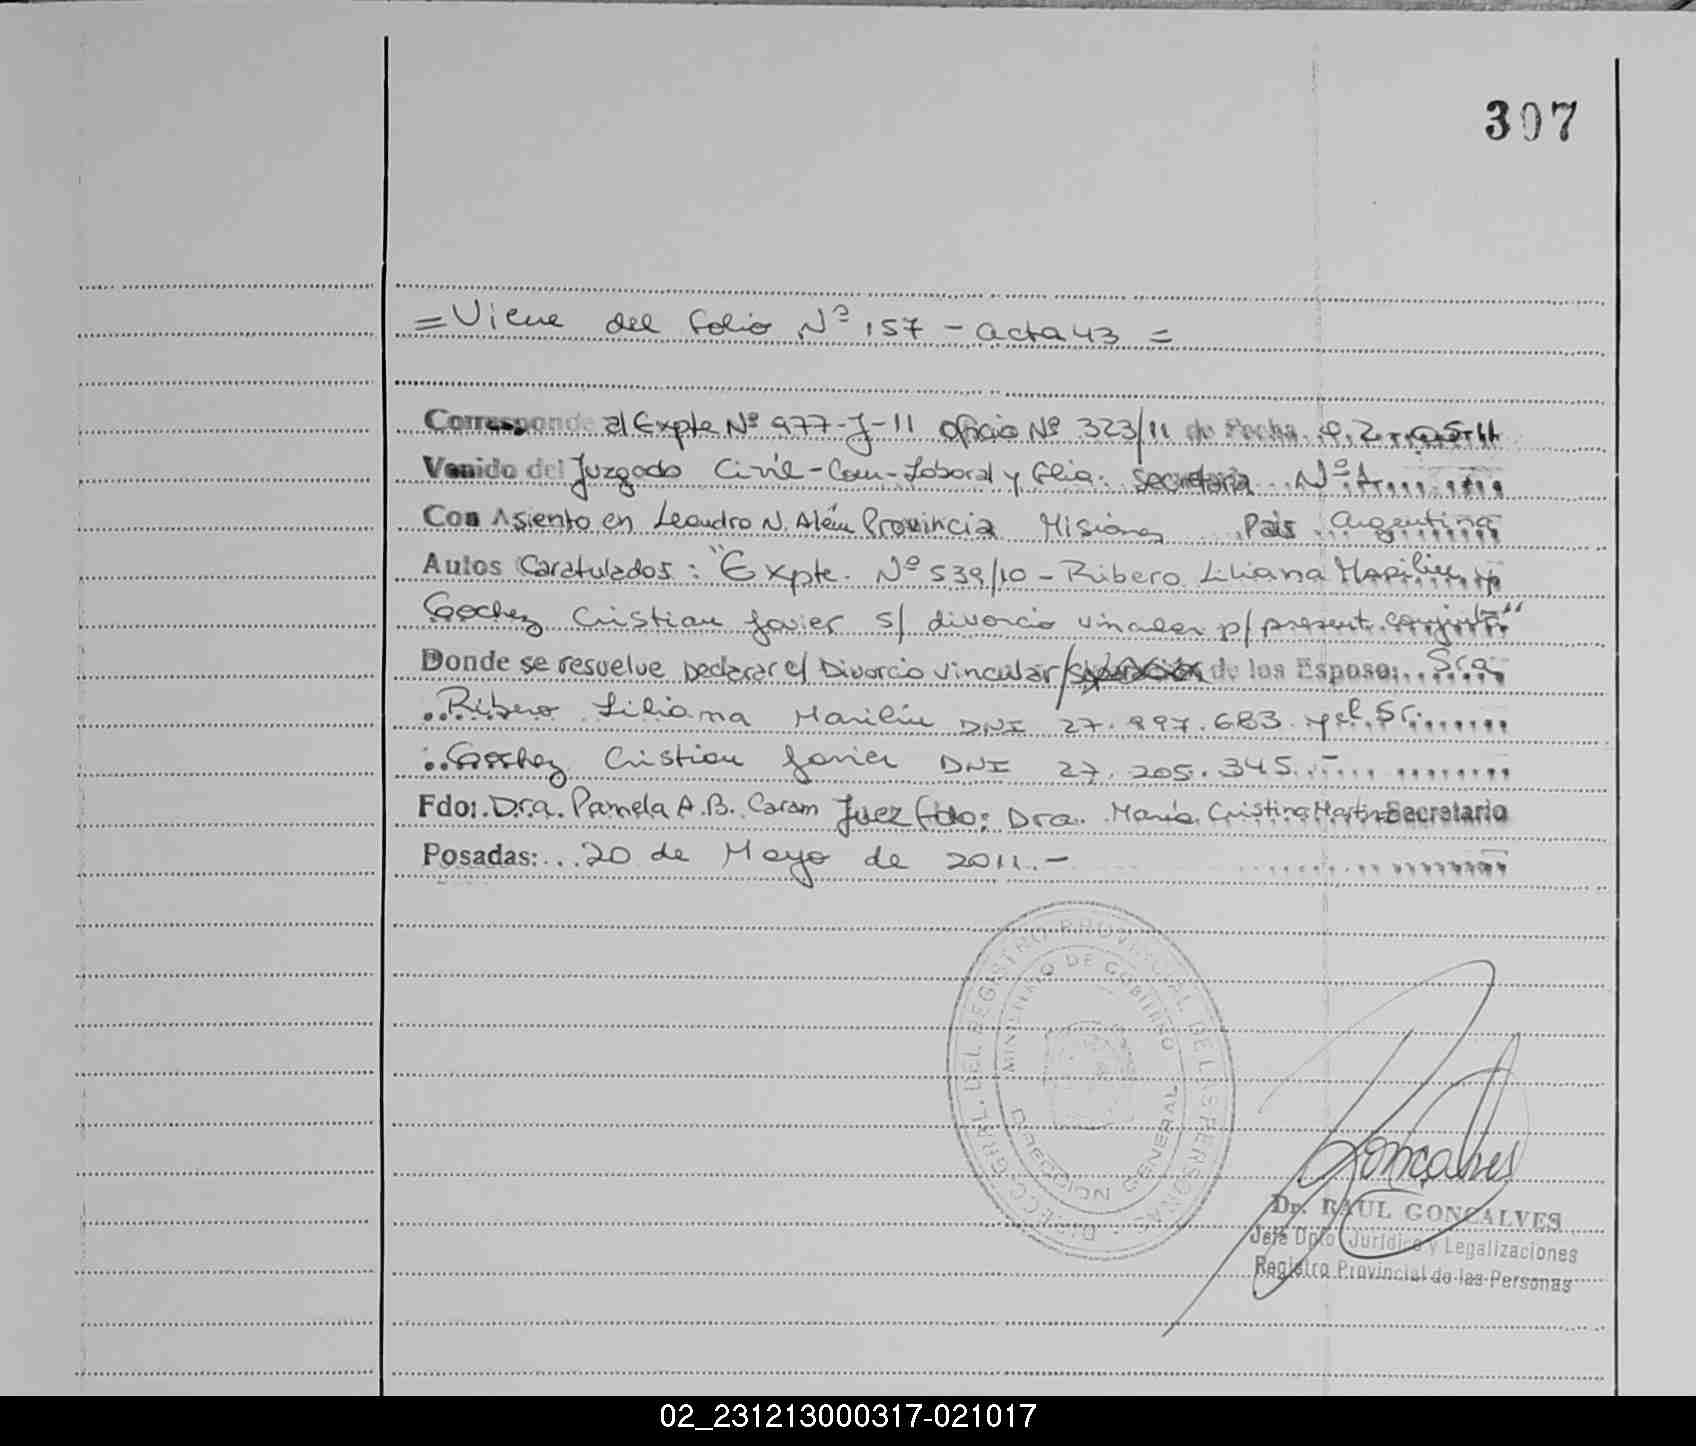 307
= Viene del folio Nº 157 - acta 43 =
Corresponde al Expte Nº 977-J-11 oficio Nº 323/11 de Fecha 02.05.11
Venido del Juzgado Civil-Com-Laboral y Flia. Secretaria Nº 1
Con Asiento en Leandro N. Além Provincia Misiones País Argentina
Autos Caratulados: "Expte. Nº 539/10 - Ribero Liliana Marilin y
Cristian Javier s/ divorcio vincular p/ present. conjunta"
Donde se resuelve Declarar el Divorcio Vincular/Separación de los Esposo: Sra
Ribero Liliana Marilin DNI 27.997.683 y el Sr.
Cristian Javier DNI 27.205.345.-
Fdo: Dra. Pamela A.B. Caram Juez Fdo: Dra. María Cristina Secretario
Posadas: 20 de Mayo de 2011.-
DIRECC. GRAL. DEL REGISTRO PROVINCIAL DE LAS PERSONAS
MINISTERIO DE GOBIERNO
DIRECCION GENERAL
Gonçalves
Dr. RAUL GONCALVES
Jefe Dpto Jurídico y Legalizaciones
Registro Provincial de las Personas
02_231213000317-021017